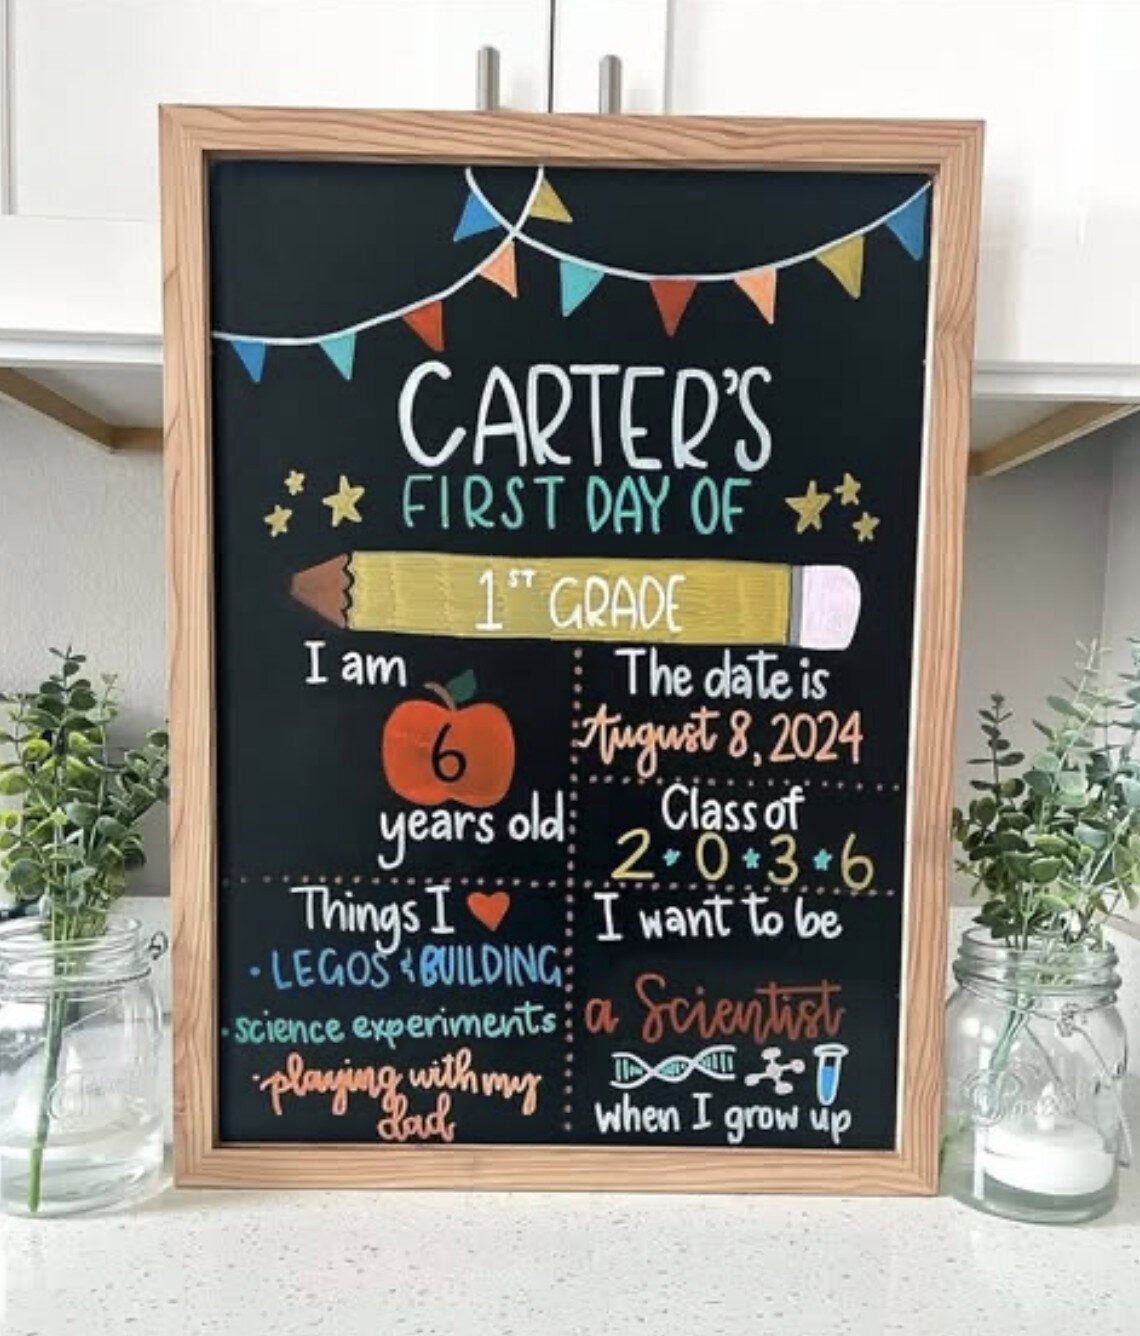 CARTER'S
FIRST DAY OF
1ST GRADE
I am
6
years old
The date is
August 8, 2024
Class of
2036
Things I
• LEGOS & BUILDING
• science experiments
• playing with my
dad
I want to be
a Scientist
when I grow up